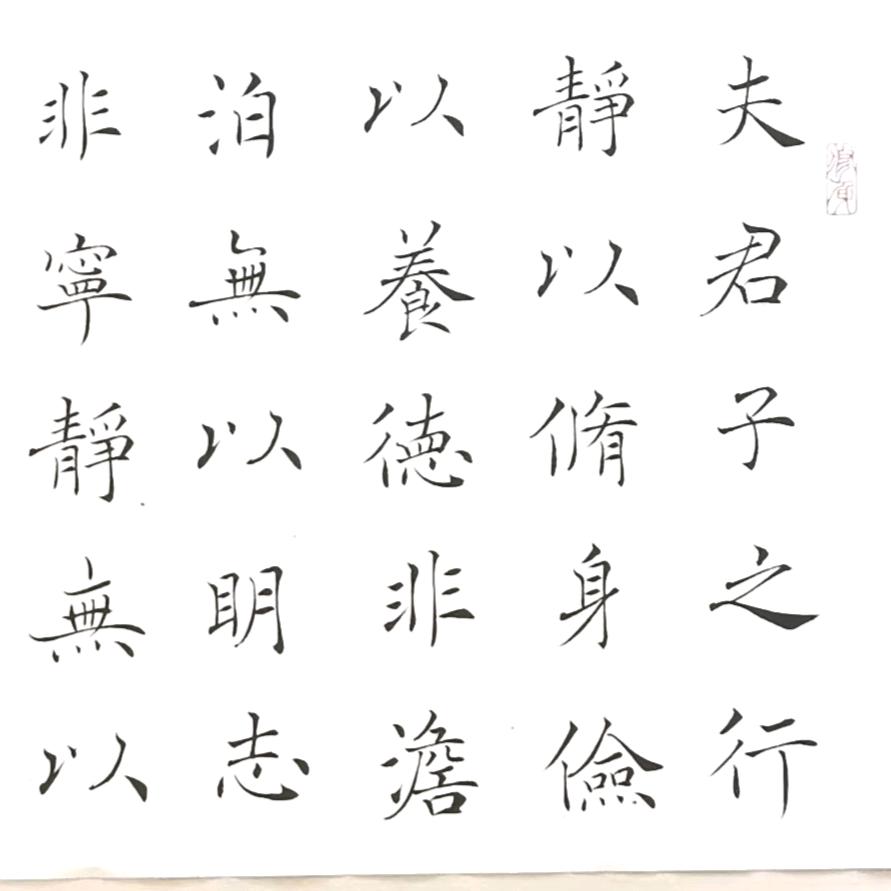 夫君子之行
靜以脩身儉
以養德非澹
泊無以明志
非寧靜無以